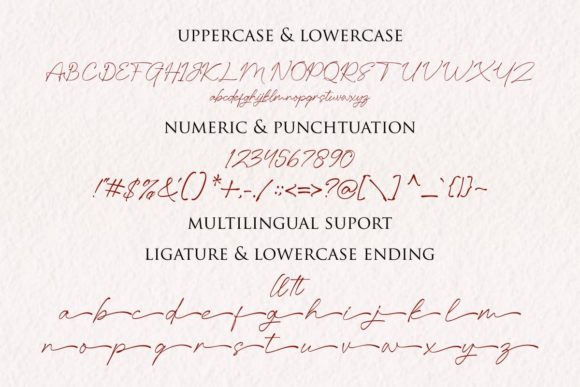 UPPERCASE & LOWERCASE
ABCDEFGHIJKLMNOPQRSTUVWXYZ
abcdefghijklmnopqrstuvwxyz
NUMERIC & PUNCHTUATION
1234567890
!"#$%&'()*+,-./:;<=>?@[\]^_`{|}~
MULTILINGUAL SUPORT
LIGATURE & LOWERCASE ENDING
a b c d e f g h i j k l m
n o p q r s t u v w x y z